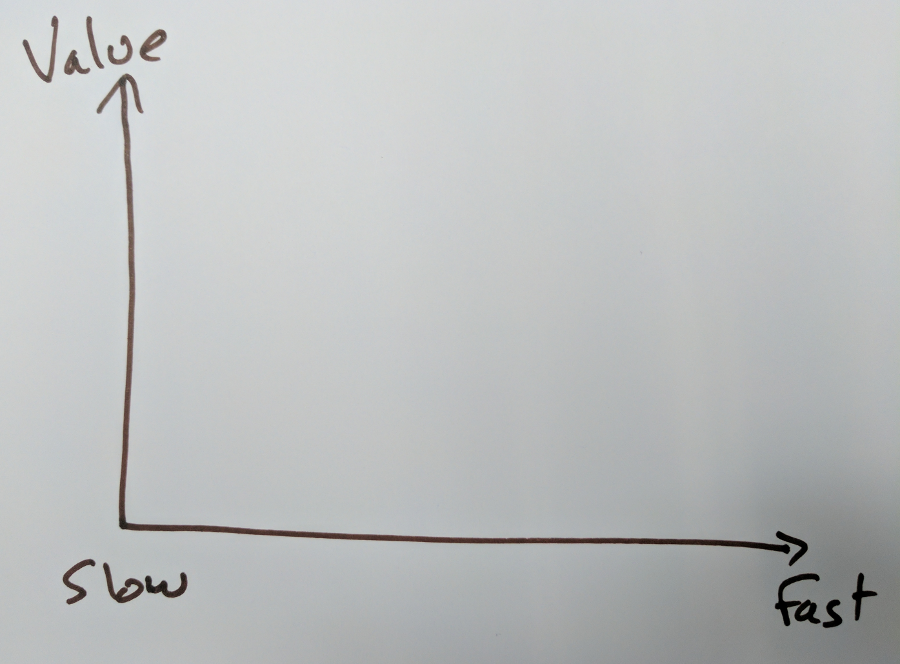 Value
Slow
Fast